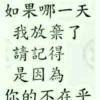 如果哪一天
我放棄了
請記得
是因為
你的不在乎